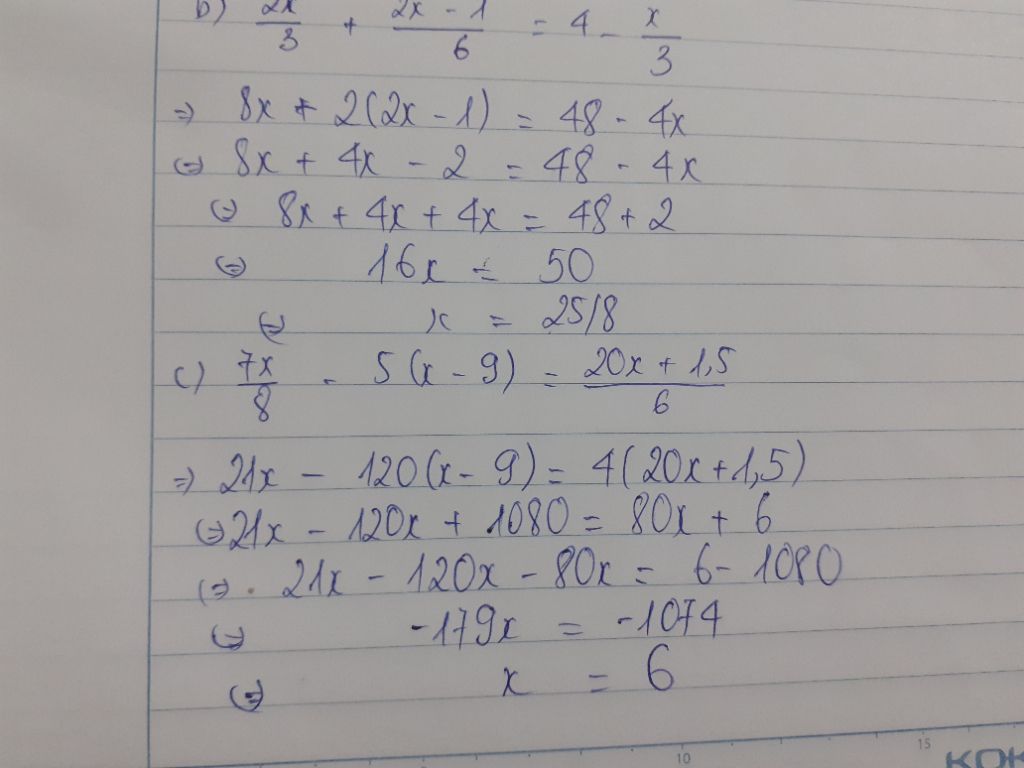 b) 2x/3 + 2x - 1/6 = 4 - x/3
=> 8x + 2(2x - 1) = 48 - 4x
(=) 8x + 4x - 2 = 48 - 4x
(=) 8x + 4x + 4x = 48 + 2
(=) 16x = 50
(=) x = 25/8
c) 7x/8 - 5(x - 9) = 20x + 1,5/6
=> 21x - 120(x - 9) = 4(20x + 1,5)
(=) 21x - 120x + 1080 = 80x + 6
(=) 21x - 120x - 80x = 6 - 1080
(=) -179x = -1074
(=) x = 6
10 15